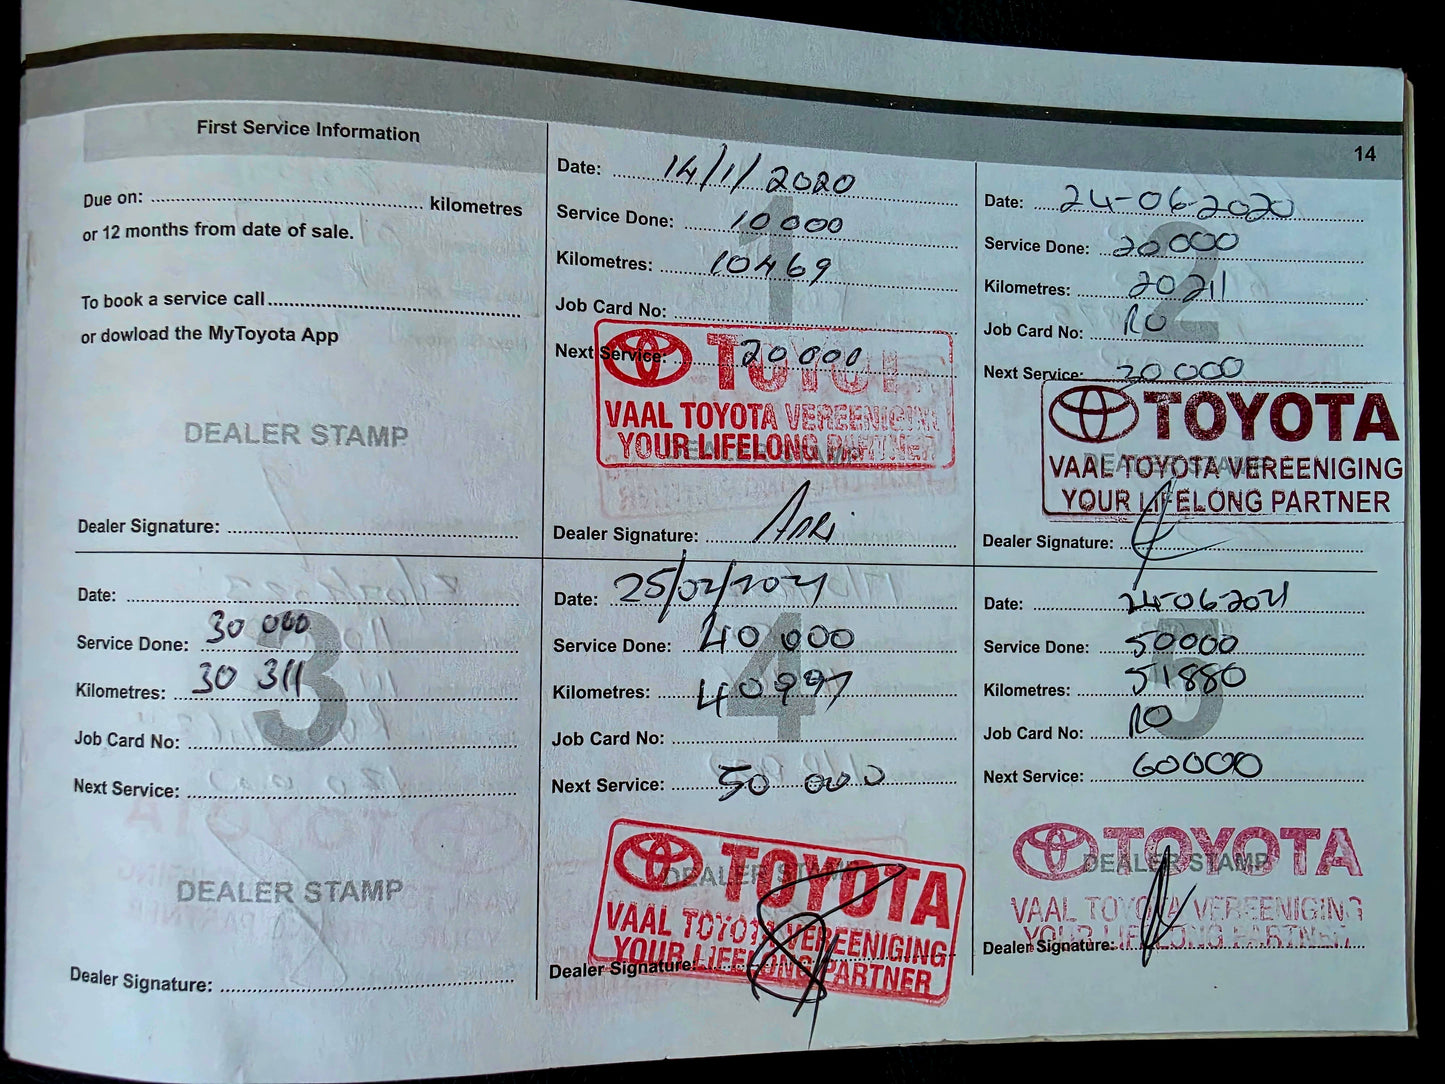 14
First Service Information
Due on: kilometres
or 12 months from date of sale.
To book a service call
or dowload the MyToyota App
DEALER STAMP
Dealer Signature:
1
Date: 14/1/2020
Service Done: 10 000
Kilometres: 10469
Job Card No:
Next Service: 20 000
TOYOTA
VAAL TOYOTA VEREENIGING
YOUR LIFELONG PARTNER
DEALER STAMP
Dealer Signature: Anri
2
Date: 24-06-2020
Service Done: 20 000
Kilometres: 20211
Job Card No: RO
Next Service: 20 000
TOYOTA
VAAL TOYOTA VEREENIGING
YOUR LIFELONG PARTNER
DEALER STAMP
Dealer Signature:
3
Date:
Service Done: 30 000
Kilometres: 30 311
Job Card No:
Next Service:
DEALER STAMP
Dealer Signature:
4
Date: 25/02/2021
Service Done: 40 000
Kilometres: 40997
Job Card No:
Next Service: 50 000
TOYOTA
DEALER STAMP
VAAL TOYOTA VEREENIGING
YOUR LIFELONG PARTNER
Dealer Signature:
5
Date: 24-06-2021
Service Done: 50000
Kilometres: 51880
Job Card No: RO
Next Service: 60000
TOYOTA
DEALER STAMP
VAAL TOYOTA VEREENIGING
YOUR LIFELONG PARTNER
Dealer Signature: